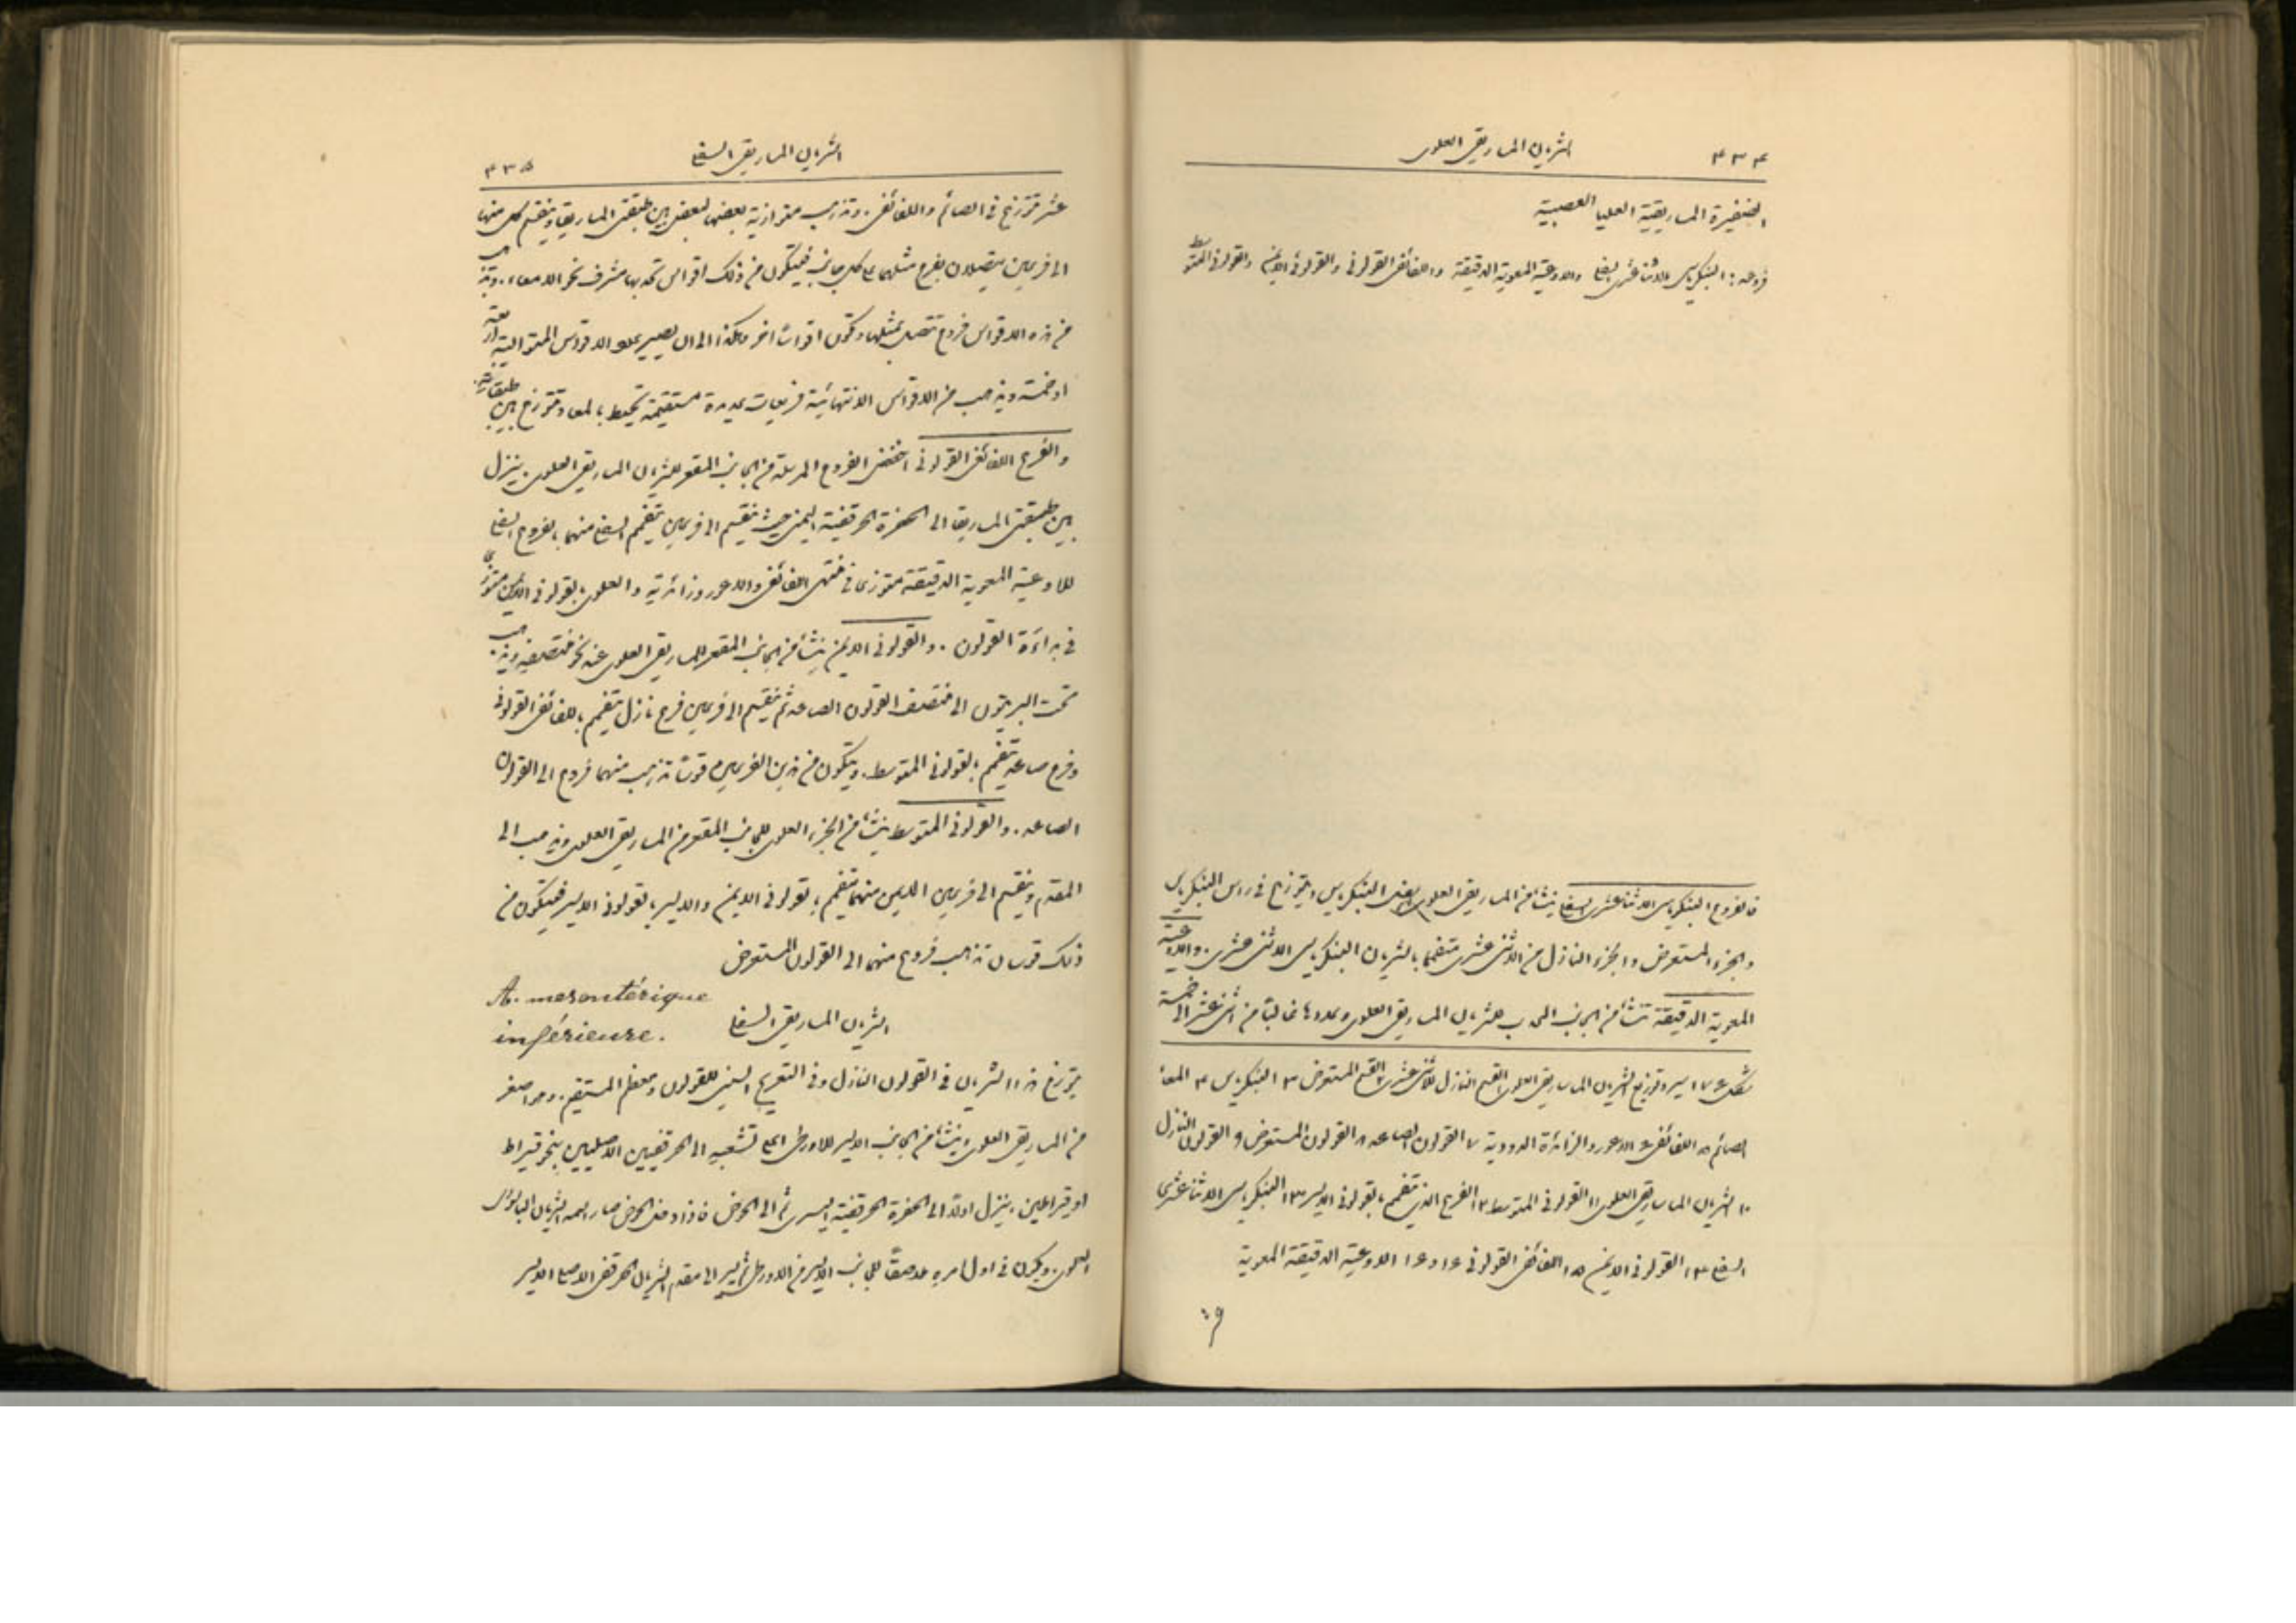 ٤٣٤ الشريان الماساريقي العلوي
الضفيرة الماساريقية العليا العصبية
فروعه: البنكرياسي الاثنا عشري السفلي والاوعية المعوية الدقيقة واللفائفي القولوني والقولوني الايمن والقولوني المتوسط
فالفروع البنكرياسي الاثنا عشري السفلي ينشأ من الماساريقي العلوي البنكرياس ويتوزع في راس البنكرياس
والجزء المستعرض والجزء النازل من الاثني عشري متفمما بالشريان البنكرياسي الاثني عشري. والاوعية
المعوية الدقيقة تنشأ من الجانب المحدب للشريان الماساريقي العلوي وعددها غالبا من اثني عشر الى خمسة
شكل ١٧٤ سير وتوزيع الشريان الماساريقي العلوي ١ القسم النازل للاثني عشري ٢ القسم المستعرض ٣ البنكرياس ٤ المعا
الصائم ٥ اللفائفي ٦ الاعور والزائدة الدودية ٧ القولون الصاعد ٨ القولون المستعرض ٩ القولون النازل
١٠ الشريان الماساريقي العلوي ١١ القولوني المتوسط ١٢ الفرع الذي يتفمم بالقولوني الايسر ١٣ البنكرياسي الاثنا عشري
السفلي ١٤ القولوني الايمن ١٥ اللفائفي القولوني ١٦ و ١٦ الاوعية الدقيقة المعوية
الشريان الماساريقي السفلي ٤٣٥
عشر تتوزع في الصائم واللفائفي. وتذهب متوازية بعضها لبعض بين طبقتي الماساريقا وينقسم كل منها
الى فرعين يتصلان بفرع مثلهما على كل جانب فيتكون من ذلك اقواس تحدبها مشرف نحو الامعاء. وتذهب
من هذه الاقواس فروع تتصل بمثلها وتكون اقواسًا اخر وهكذا الى ان يصير عدد الاقواس المتوالية اربعة
او خمسة ويذهب من الاقواس الانتهائية فريعات عديدة مستقيمة تحيط بالمعا وتتوزع بين طبقاته.
والفرع اللفائفي القولوني اخفض الفروع المرسلة من الجانب المقعر للشريان الماساريقي العلوي. ينزل
بين طبقتي الماساريقا الى الحفرة الحرقفية اليمنى حيث ينقسم الى فرعين يتفمم السفلي منهما بالفروع السفلى
للاوعية المعوية الدقيقة متوزعا في منتهى اللفائفي والاعور وزائدته والعلوي بالقولوني الايمن متوزعا
في بداءة القولون. والقولوني الايمن ينشأ من الجانب المقعر للماساريقي العلوي عند نحو منتصفه ويذهب
تحت البريتون الى منتصف القولون الصاعد ثم ينقسم الى فرعين فرع نازل يتفمم باللفائفي القولوني
وفرع صاعد يتفمم بالقولوني المتوسط. ويتكون من هذين الفرعين قوسًا تذهب منهما فروع الى القولون
الصاعد. والقولوني المتوسط ينشأ من الجزء العلوي للجانب المقعر من الماساريقي العلوي ويذهب الى
المقدم وينقسم الى فرعين الايمن منهما يتفمم بالقولوني الايمن والايسر بالقولوني الايسر فيتكون من
ذلك قوسان تذهب فروع منهما الى القولون المستعرض
A. mesentérique
inférieure.
الشريان الماساريقي السفلي
يتوزع هذا الشريان في القولون النازل وفي التعريج السيني للقولون ومعظم المستقيم. وهو اصغر
من الماساريقي العلوي وينشأ من الجانب الايسر للاورطى اعلى تشعبه الى الحرقفيين الاصليين بنحو قيراط
او قيراطين. ينزل اولًا الى الحفرة الحرقفية اليسرى ثم الى الحوض فاذا دخل الحوض صار اسمه الشريان الباسوري
العلوي. ويكون في اول امره ملاصقًا للجانب الايسر من الاورطى ثم يسير الى مقدم الشريان الحرقفي الاصلي الايسر